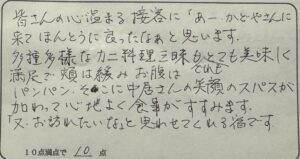 皆さんの心温まる接客に「あー、かどやさんに
来てほんとうに良ったなぁと思います。
多種多様なカニ料理三昧もとても美味しく
満足で頬は緩みお腹は
パンパン、そこに中居さんの笑顔のスパスが
加わって心地よく食事がすすみます。
「又、お訪れたいな」と思わせてくれる宿です。
10点満点で 10 点